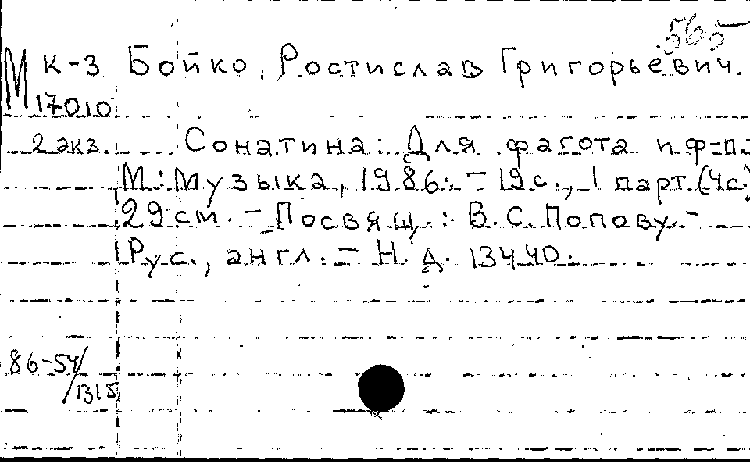 565
М К-3 Бойко, Ростислав Григорьевич.
17010
2 экз. Сонатина: Для фагота и ф-п.
М.: Музыка, 1986. - 19 с., 1 парт. (4 с.)
29 см. - Посвящ.: В. С. Попову. -
Рус., англ. - Н. д. 13440.
86-54/1315